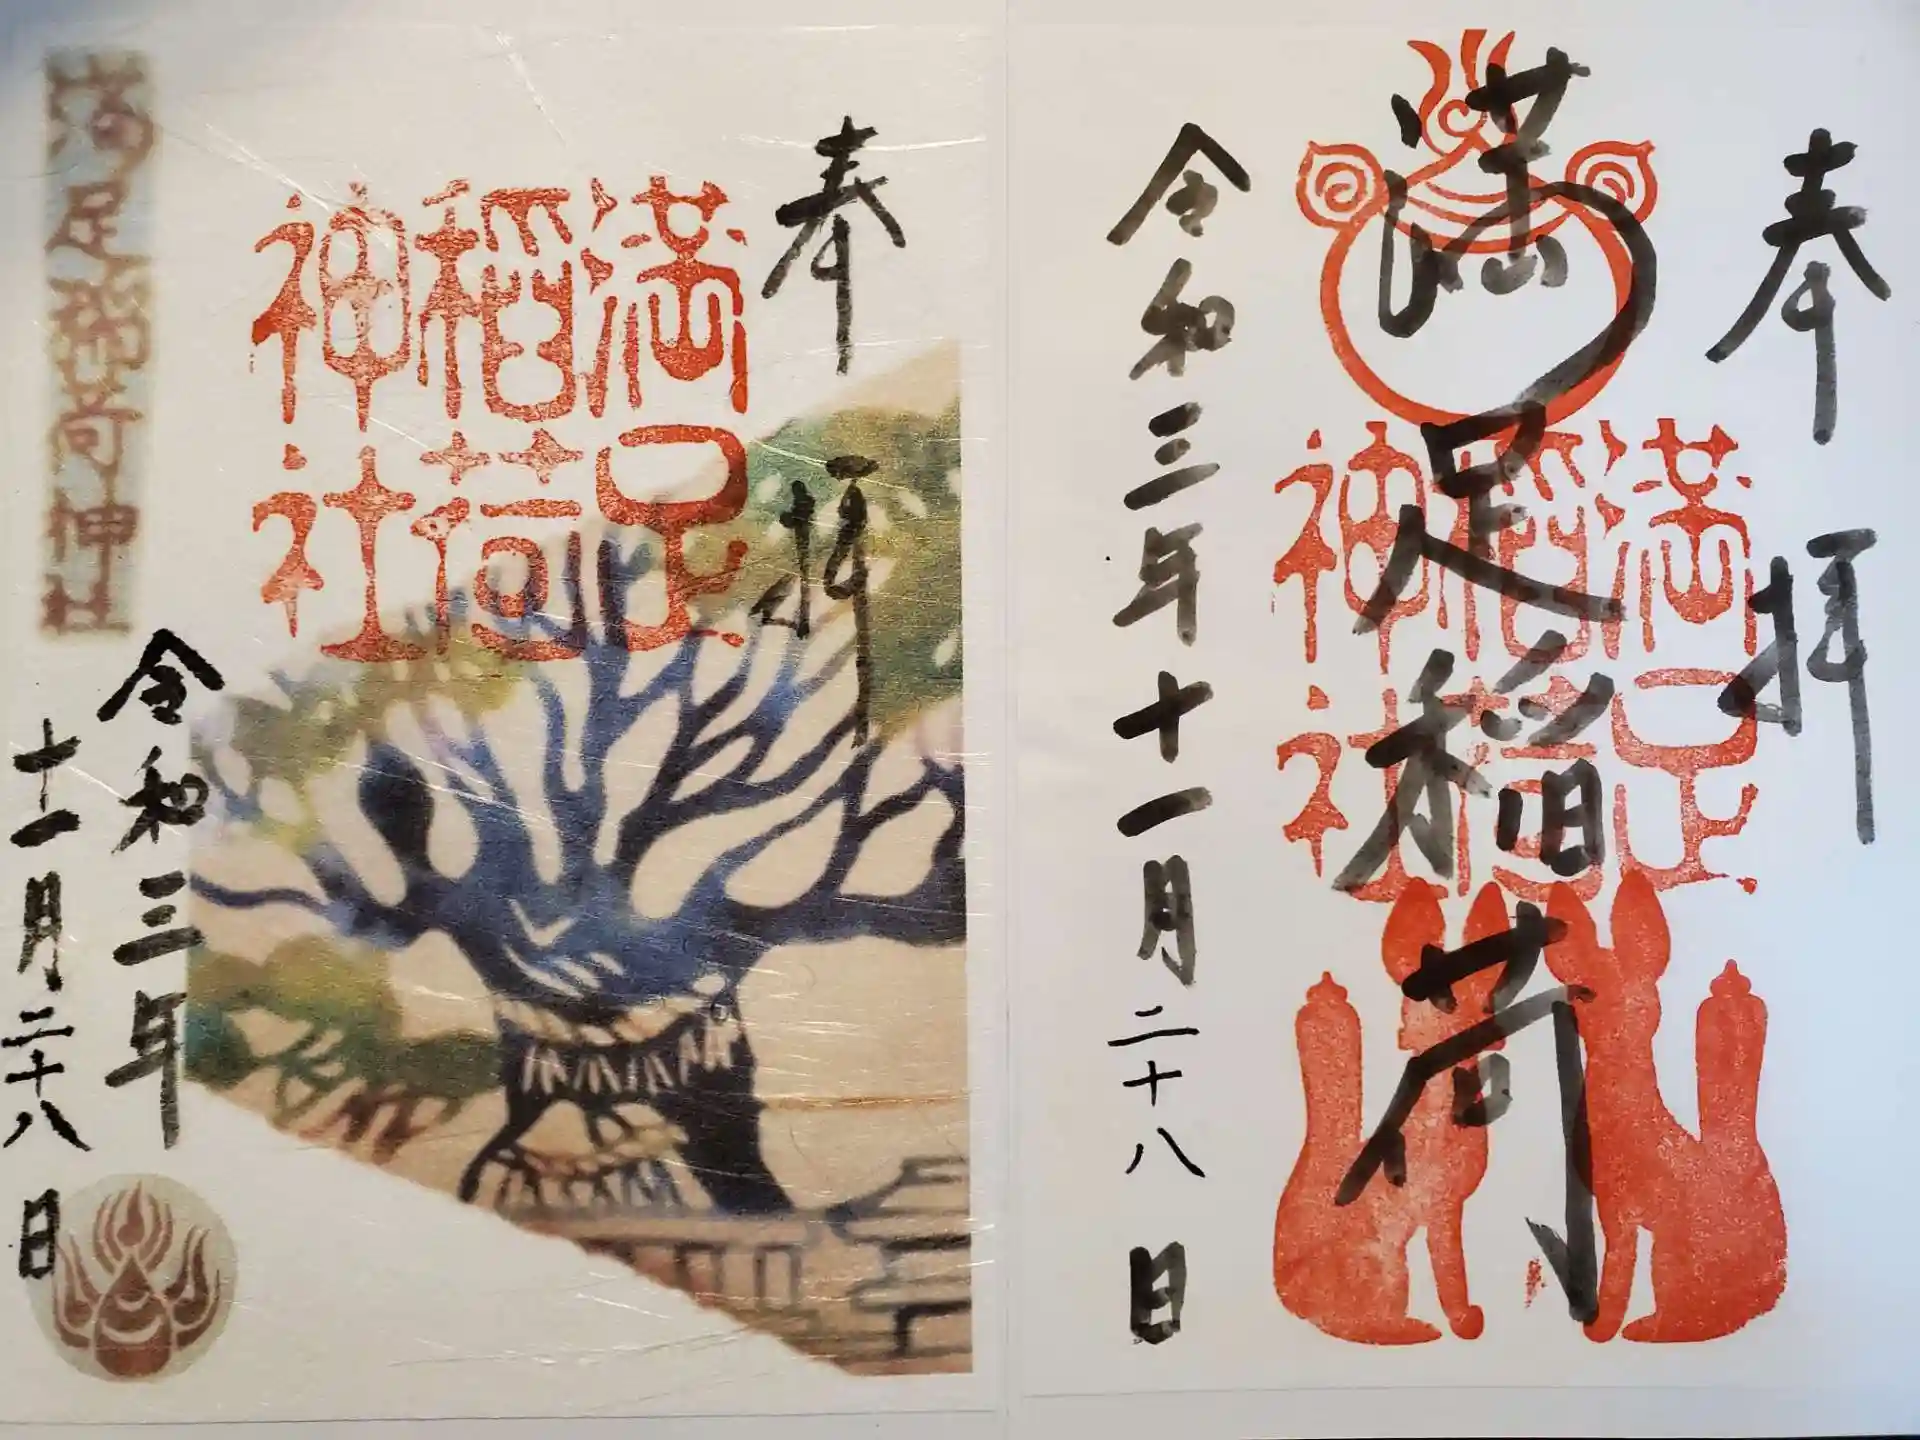 奉拝
満足稲荷
満足
稲荷
神社
令和三年十一月二十八日
奉拝
満足
稲荷
神社
令和三年
十一月二十八日
満足稲荷神社